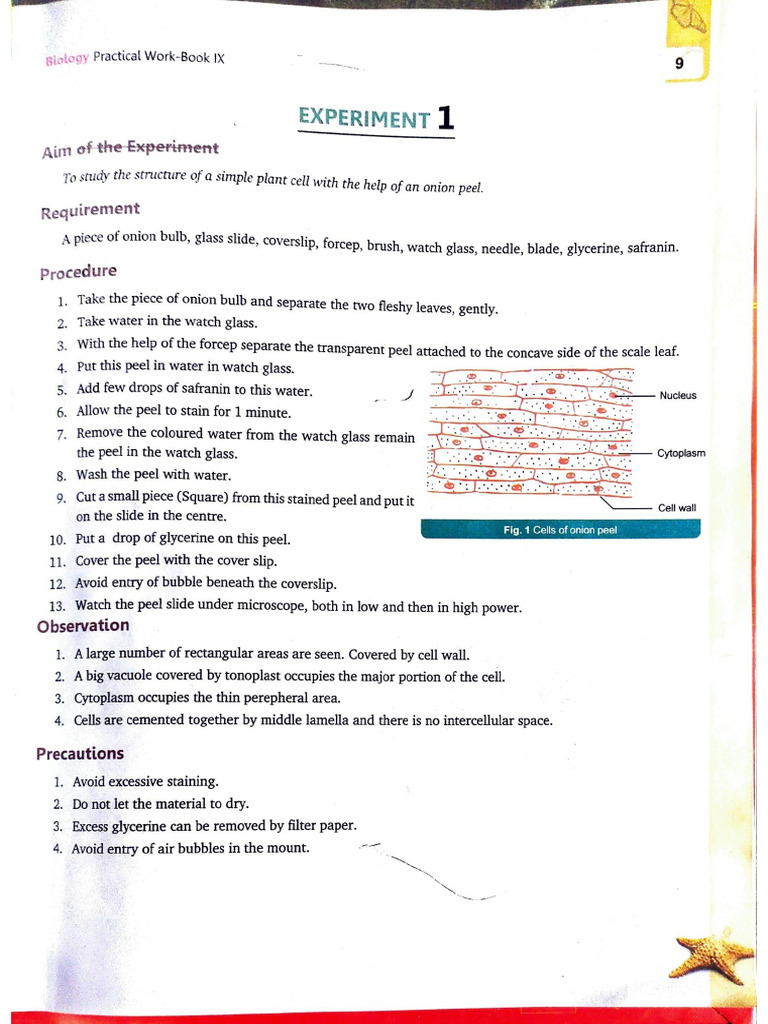 Biology Practical Work-Book IX
9
EXPERIMENT 1
Aim of the Experiment
To study the structure of a simple plant cell with the help of an onion peel.
Requirement
A piece of onion bulb, glass slide, coverslip, forcep, brush, watch glass, needle, blade, glycerine, safranin.
Procedure
1. Take the piece of onion bulb and separate the two fleshy leaves, gently.
2. Take water in the watch glass.
3. With the help of the forcep separate the transparent peel attached to the concave side of the scale leaf.
4. Put this peel in water in watch glass.
5. Add few drops of safranin to this water.
6. Allow the peel to stain for 1 minute.
7. Remove the coloured water from the watch glass remain
the peel in the watch glass.
8. Wash the peel with water.
9. Cut a small piece (Square) from this stained peel and put it
on the slide in the centre.
10. Put a drop of glycerine on this peel.
11. Cover the peel with the cover slip.
12. Avoid entry of bubble beneath the coverslip.
13. Watch the peel slide under microscope, both in low and then in high power.
Nucleus
Cytoplasm
Cell wall
Fig. 1 Cells of onion peel
Observation
1. A large number of rectangular areas are seen. Covered by cell wall.
2. A big vacuole covered by tonoplast occupies the major portion of the cell.
3. Cytoplasm occupies the thin perepheral area.
4. Cells are cemented together by middle lamella and there is no intercellular space.
Precautions
1. Avoid excessive staining.
2. Do not let the material to dry.
3. Excess glycerine can be removed by filter paper.
4. Avoid entry of air bubbles in the mount.